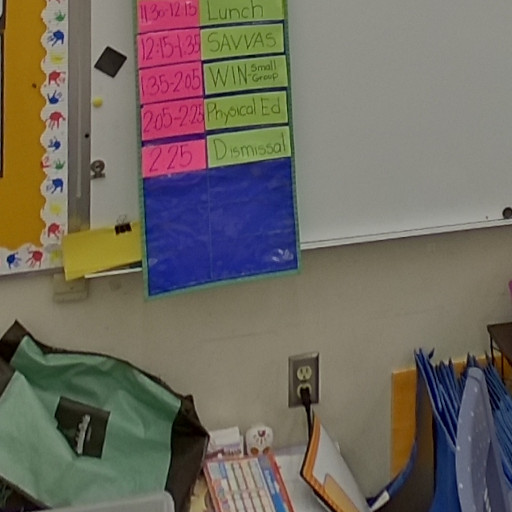 11:30-12:15 Lunch
12:15-1:35 SAVVAS
1:35-2:05 WIN-Small Group
2:05-2:25 Physical Ed
2:25 Dismissal